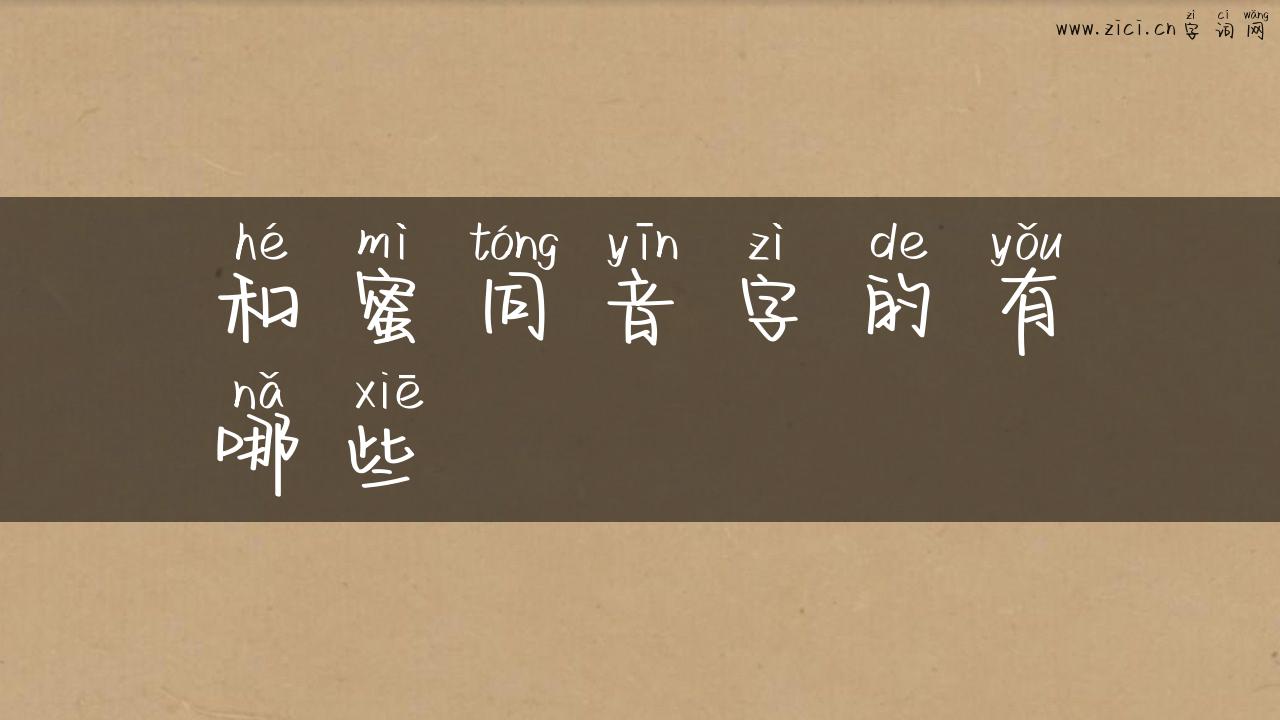 zì cí wǎng
www.zici.cn字词网
hé mì tóng yīn zì de yǒu
和蜜同音字的有
nǎ xiē
哪些